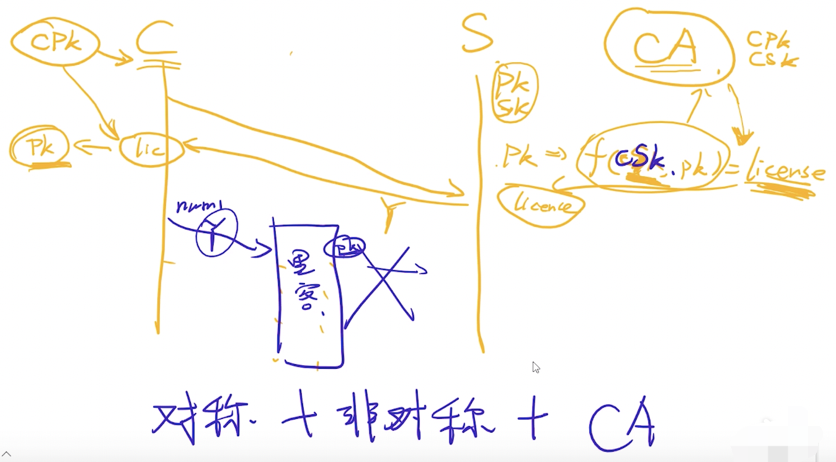 CPK
C
S
CA
CPK
CSK
PK
SK
PK
lic
.PK => f(CSK.PK)=license
licence
num1
Y
Y
PK
黑客.
对称 + 非对称 + CA